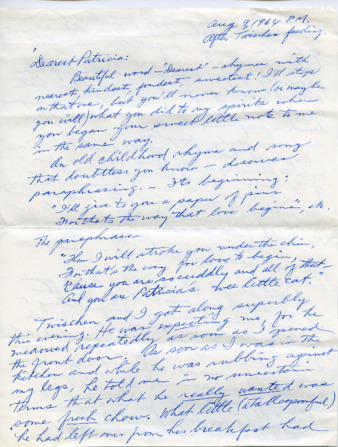 Aug 9, 1964 P.M.
After Twischen feeding.
Dearest Patricia:
Beautiful word - "Dearest" - rhymes with
nearest, kindest, fondest, sweetest! I'll stop
on that one, but you'll never know (or maybe
you will) what you did to my spirits when
you began your sweet little note to me
in the same way.
An old childhood rhyme and song
that doubtless you know - deserves
paraphrasing. - Its beginning:
"I'll give to you a paper of pins
For that's the way that love begins", etc.
The paraphrase
"Then I will stroke you under the chin,
For that's the way for love to begin,
'Cause you are so cuddly and all of that -
And you are Patricia's wee little cat."
Twischen and I got along superbly
this evening. He was expecting me, for he
meowed repeatedly as soon as I opened
the front door. As soon as I was in the
kitchen and while he was rubbing against
my legs, he told me in no uncertain
terms that what he really wanted was
some fresh chow. What little (a tablespoonful)
he had left over from his breakfast had